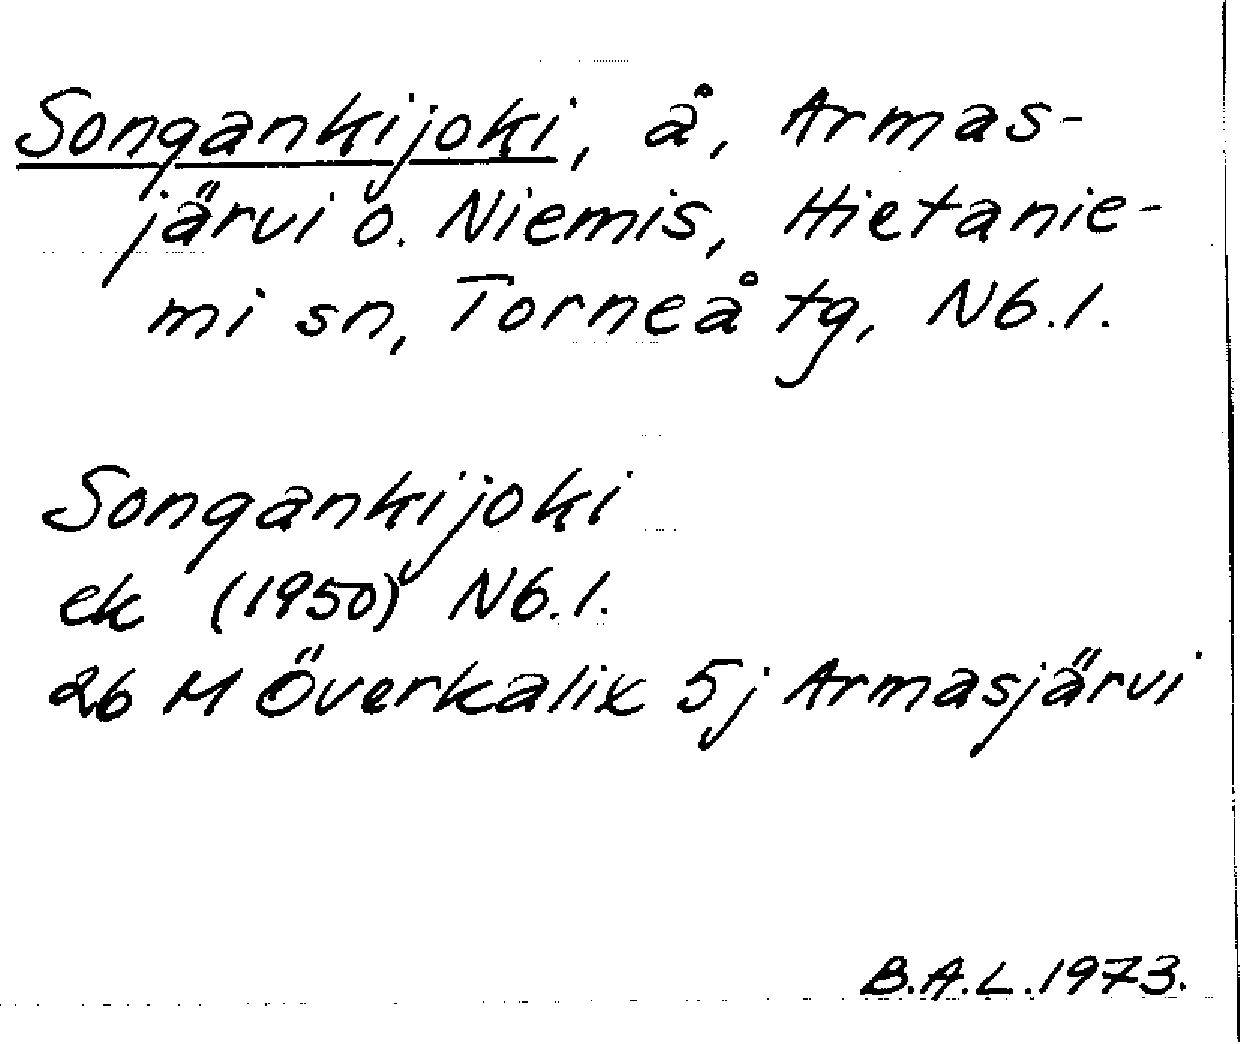 Songankijoki, å, Armas-
järvi o. Niemis, Hietanie-
mi sn, Torneå tg, Nb.l.
Songankijoki
ek (1950) Nb.l.
26 M Överkalix 5j Armasjärvi
B.A.L. 1973.